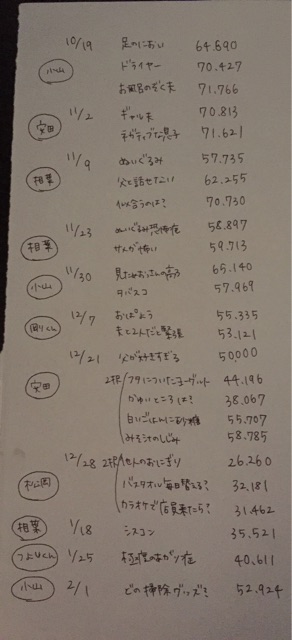 10/19 足のにおい 64.890
小山 ドライヤー 70.427
お風呂のぞく夫 71.766
11/2 ギャル夫 70.813
安田 ネガティブな息子 71.621
11/9 ぬいぐるみ 57.735
相葉 父と話せない 62.255
似合うのは? 70.730
11/23 ぬいぐるみ恐怖症 58.897
相葉 サメが怖い 59.713
11/30 見ため 65.140
小山 タバスコ 57.969
12/7 おぱよう 55.335
剛くん 夫と2人だと緊張 53.121
12/21 父が好きすぎる 50,000
安田 2択 フタについたヨーグルト 44.196
かゆいところは? 38.067
白いごはんに砂糖 55.707
みそ汁のしじみ 58.785
12/28 2択 せんのおにぎり 26.260
松岡 バスタオル毎日替える? 32.181
カラオケで店員来たら? 31.462
相葉 1/18 シスコン 35.521
つよしくん 1/25 極度のあがり症 40.611
小山 2/1 どの掃除グッズ? 52.924